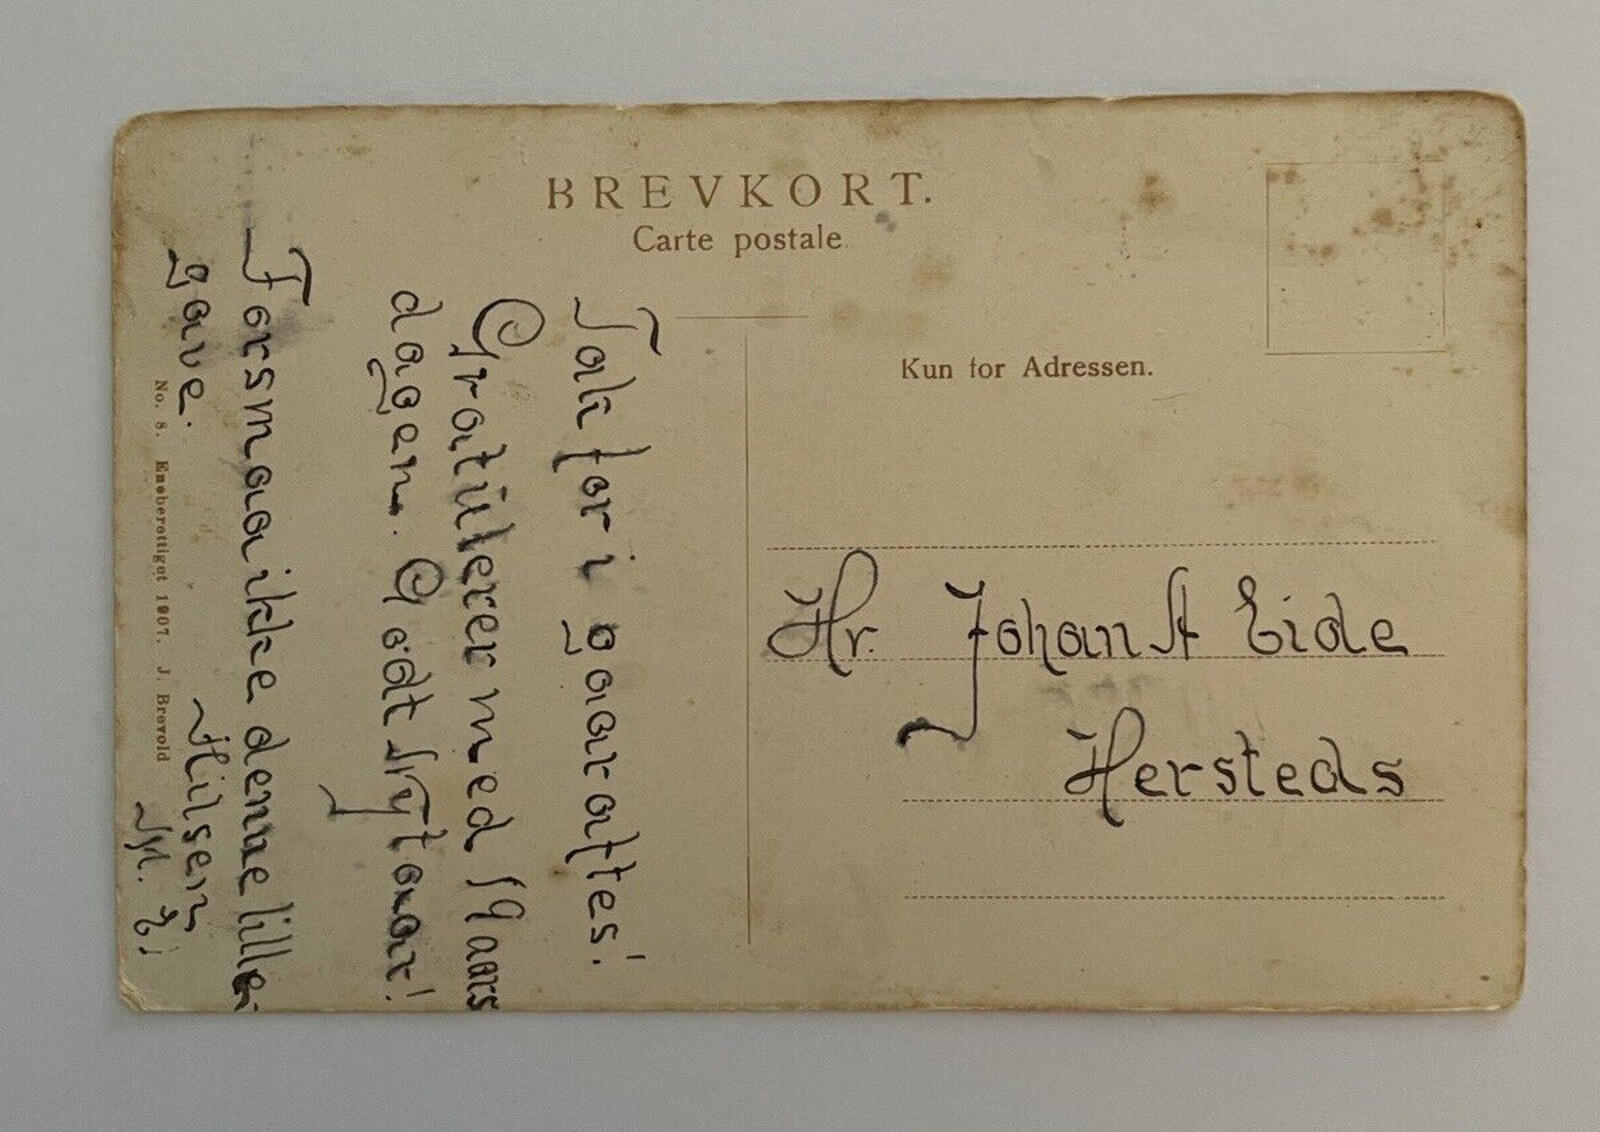 BREVKORT.
Carte postale
Kun for Adressen.
Tak for i gaar aftes!
Gratülerer med 19 aars
dagen. Godt Nytaar!
Forsmaa ikke denne lille
gave.
Hilsen
Hr. Johan A Eide
Hersteds
No. 8. Eneberettiget 1907. J. Brevold